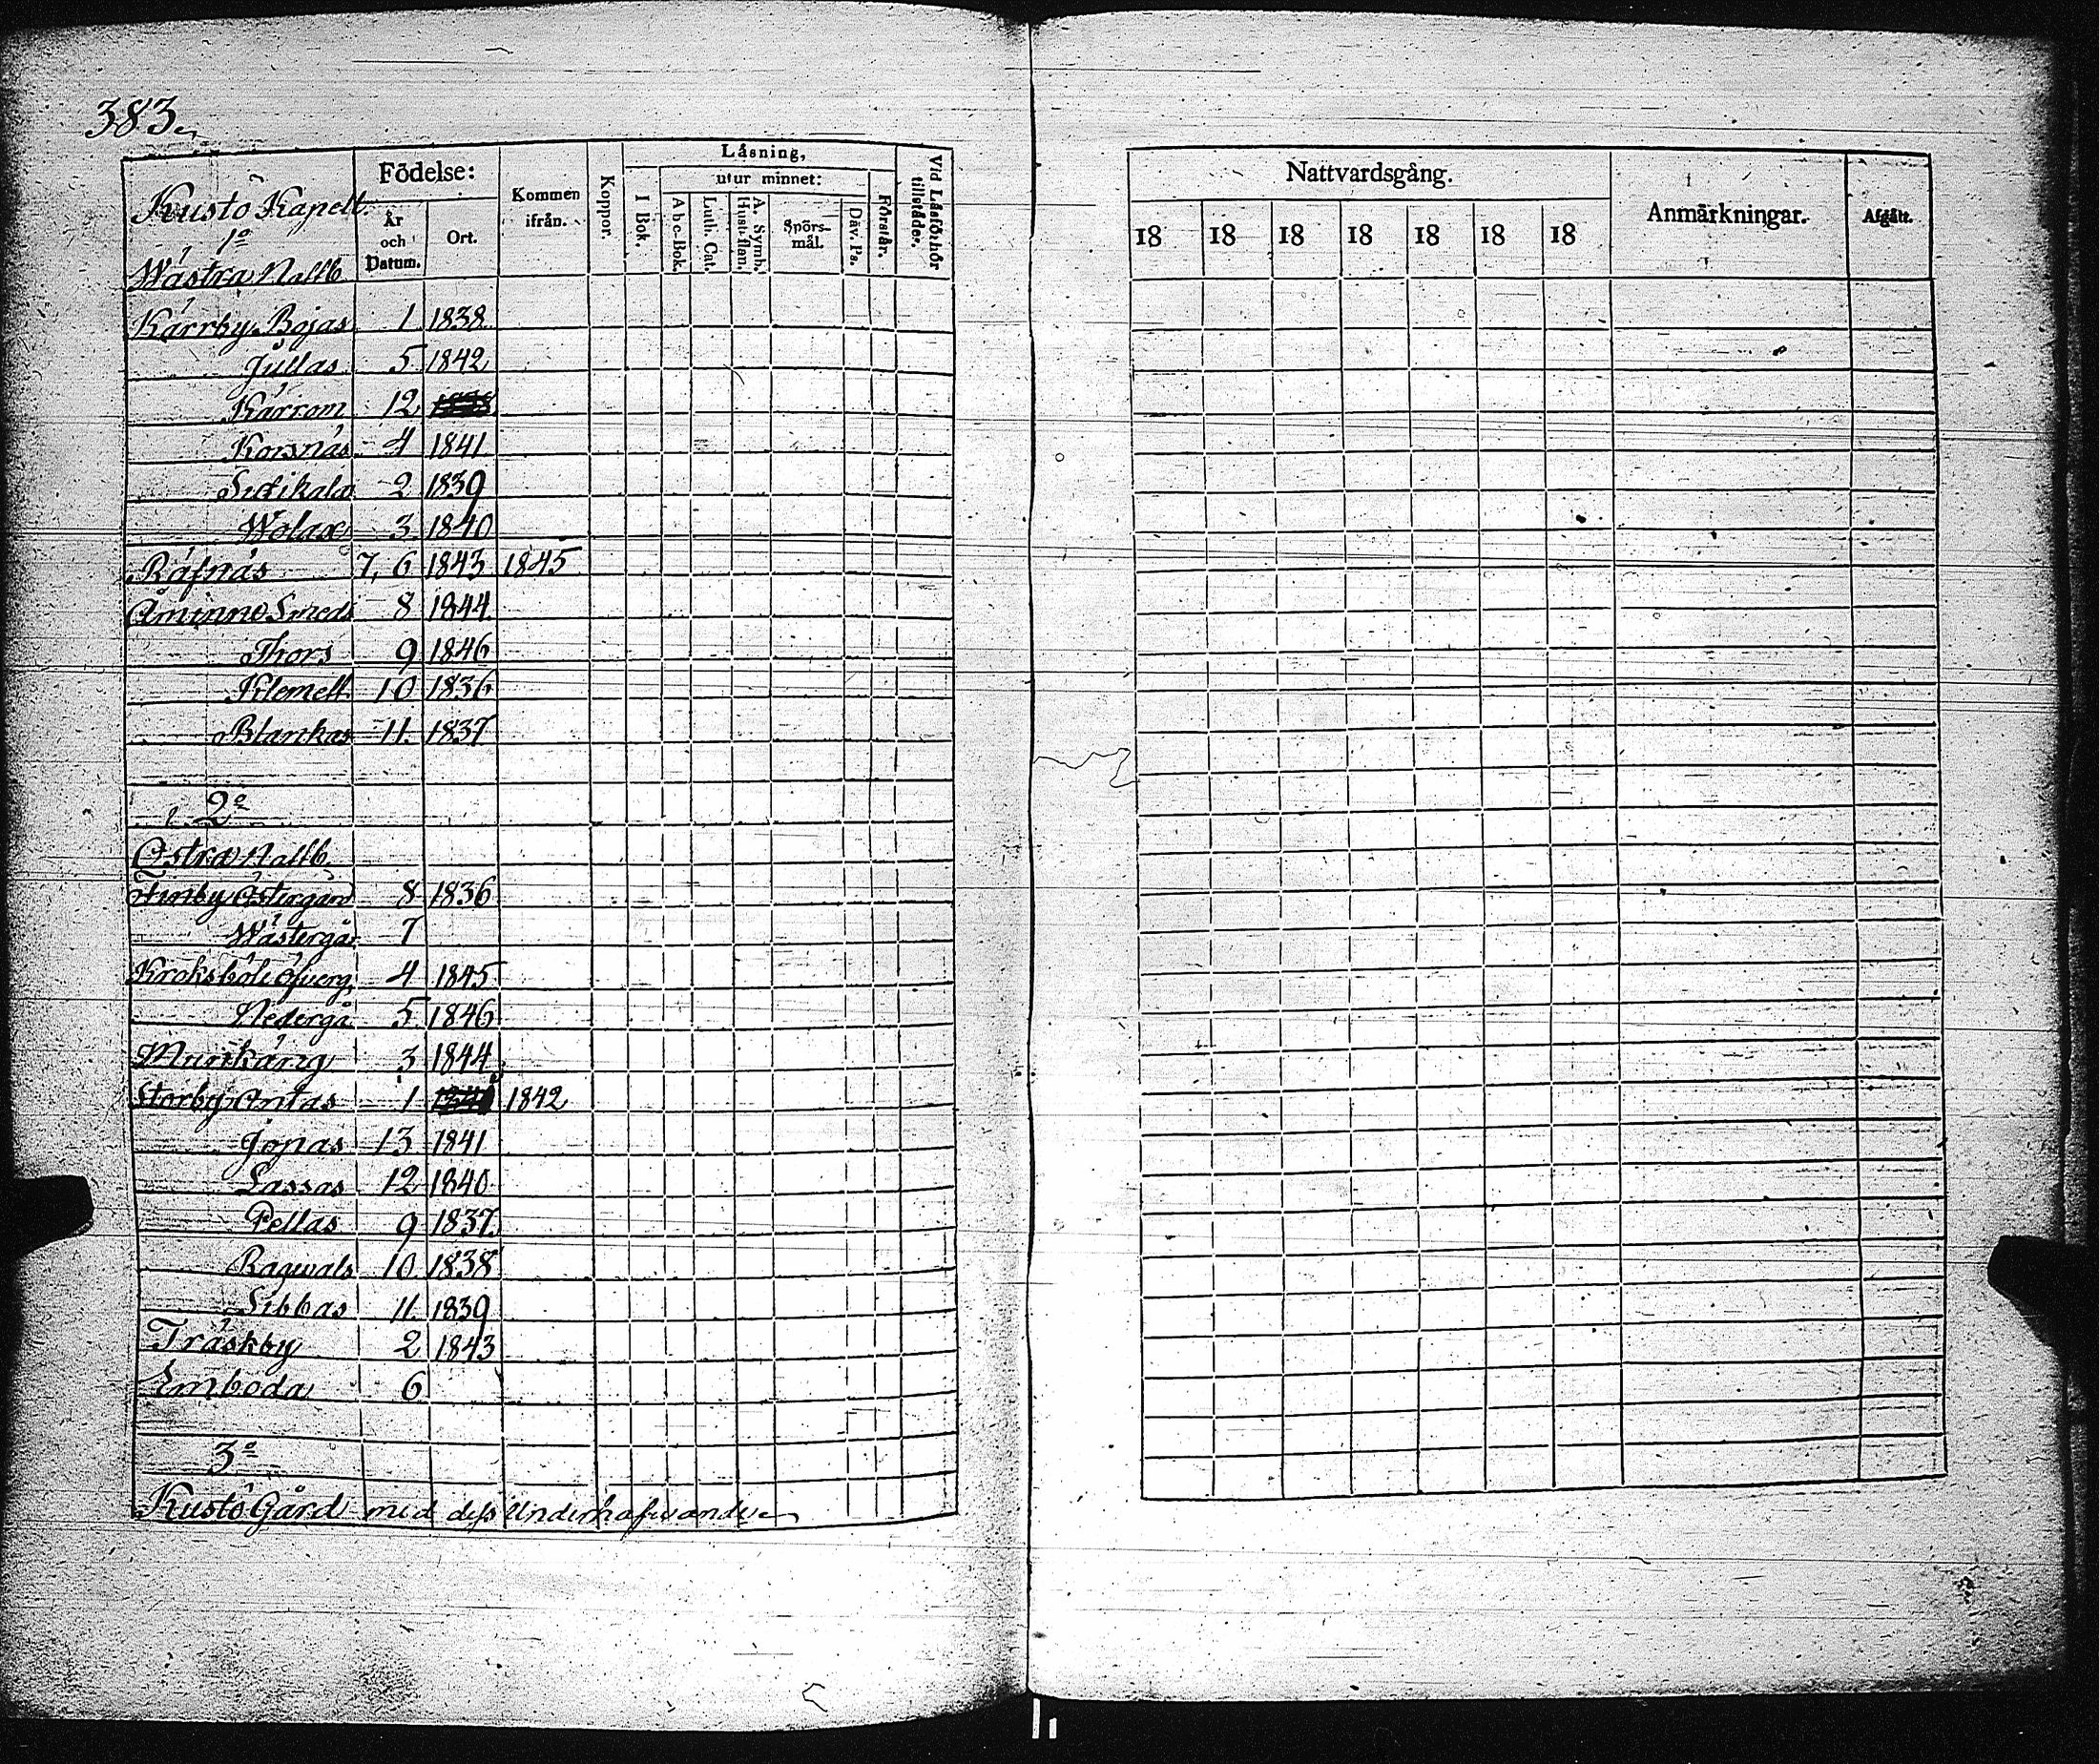 383.
Födelse:
År och Datum.
Ort.
Kommen ifrån.
Koppor.
Läsning,
I Bok.
utur minnet:
A b c-Bok.
Luth. Cat.
A. Symb. Hust-flan.
Spörs-mål.
Dav. Ps.
Förstår.
Vid Läsförhör tillstädes.
Nattvardsgång.
18 18 18 18 18 18 18
Anmärkningar.
Afgått.
Kustö Kapell.
1o
Wästra Nattb.
Kärrby Bojas 1 1838
Jullas 5 1842
Kärrom 12
Korsnäs 4 1841
2 1839
Wolax 3 1840
Räfnäs 7, 6 1843 1845
Åminne Smeds 8 1844
Thors 9 1846
Klemett 10 1836
Blankas 11. 1837
2o
Östra Nattb.
Östergård 8 1836
Wästergå 7
Kroksböle Öfverg. 4 1845
Nedergå 5 1846
Munkäng 3 1844
Storby Antas 1 1842
Jonas 13 1841
Lassas 12 1840
Pellas 9 1837.
Ragwals 10 1838
Sibbas 11. 1839
Träskby 2 1843
Emboda 6
3o
Kustö Gård med dess Underhafwande